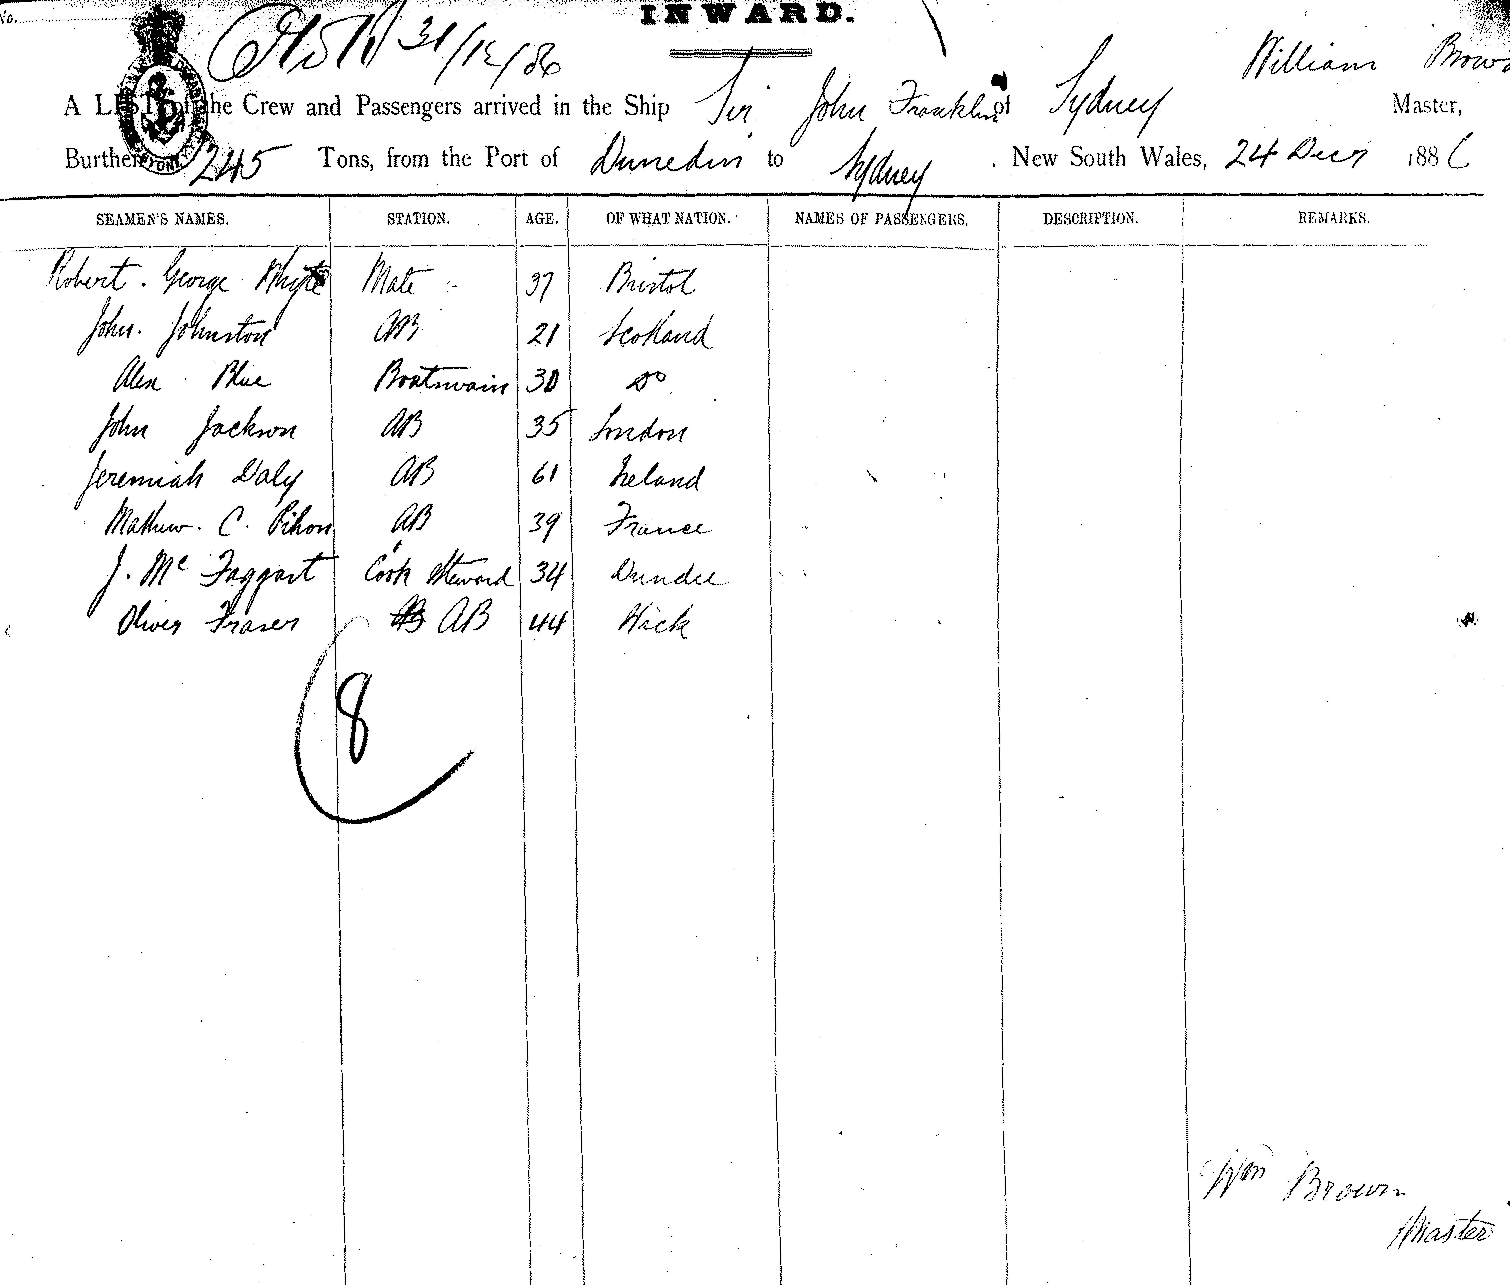 No.
INWARD.
31/12/86
William Brown
A LIST of the Crew and Passengers arrived in the Ship Sir John Franklin of Sydney Master,
Burthen 245 Tons, from the Port of Dunedin to Sydney. New South Wales, 24 Decr 1886
SEAMEN'S NAMES. STATION. AGE. OF WHAT NATION. NAMES OF PASSENGERS. DESCRIPTION. REMARKS.
Robert. George Whyte Mate 37 Bristol
John. Johnston AB 21 Scotland
Alex Blue Boatswain 30 Do
John Jackson AB 35 London
Jeremiah Daly AB 61 Ireland
Mathew. C. Pihon AB 39 France
J. Mc Taggart Cook Steward 34 Dundee
Oliver Fraser AB 44 Wick
8
Wm Brown
Master